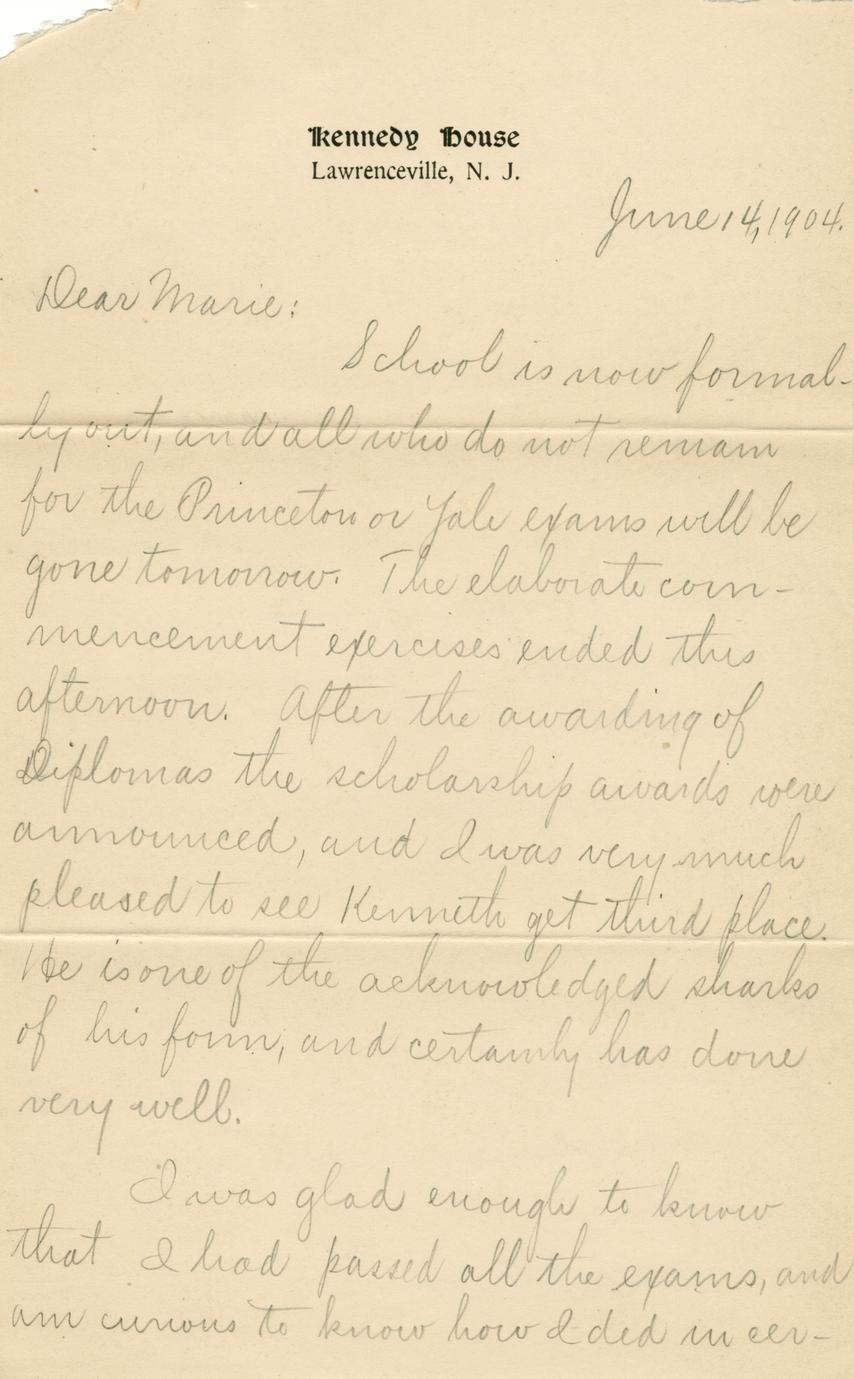 Kennedy House
Lawrenceville, N. J.
June 14, 1904.
Dear Marie:
School is now formal-
ly out, and all who do not remain
for the Princeton or Yale exams will be
gone tomorrow. The elaborate com-
mencement exercises ended this
afternoon. After the awarding of
Diplomas the scholarship awards were
announced, and I was very much
pleased to see Kenneth get third place.
He is one of the acknowledged sharks
of his form, and certainly has done
very well.
I was glad enough to know
that I had passed all the exams, and
am curious to know how I did in cer-